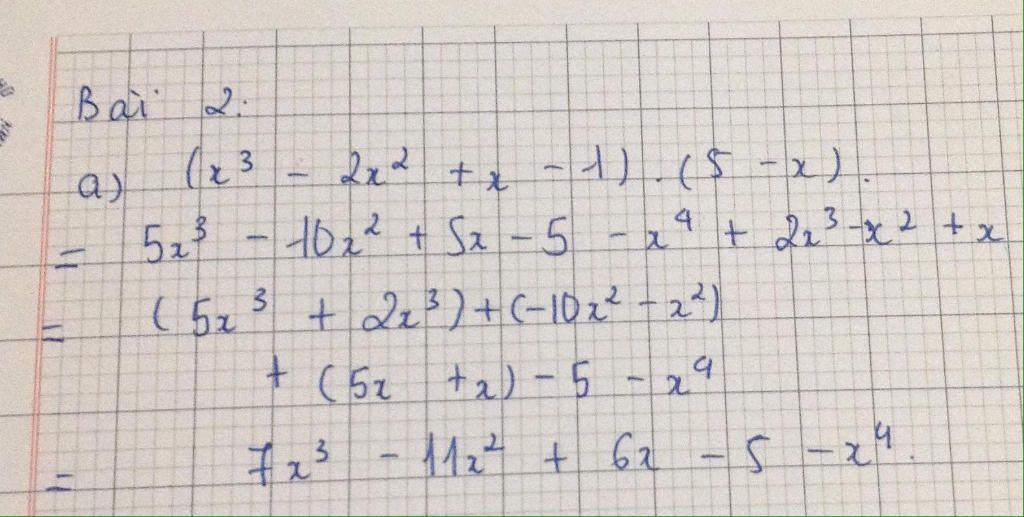 Bài 2:
a) (x³ - 2x² + x - 1) . (5 - x).
= 5x³ - 10x² + 5x - 5 - x⁴ + 2x³ - x² + x
= (5x³ + 2x³) + (-10x² - x²)
+ (5x + x) - 5 - x⁴
= 7x³ - 11x² + 6x - 5 - x⁴.